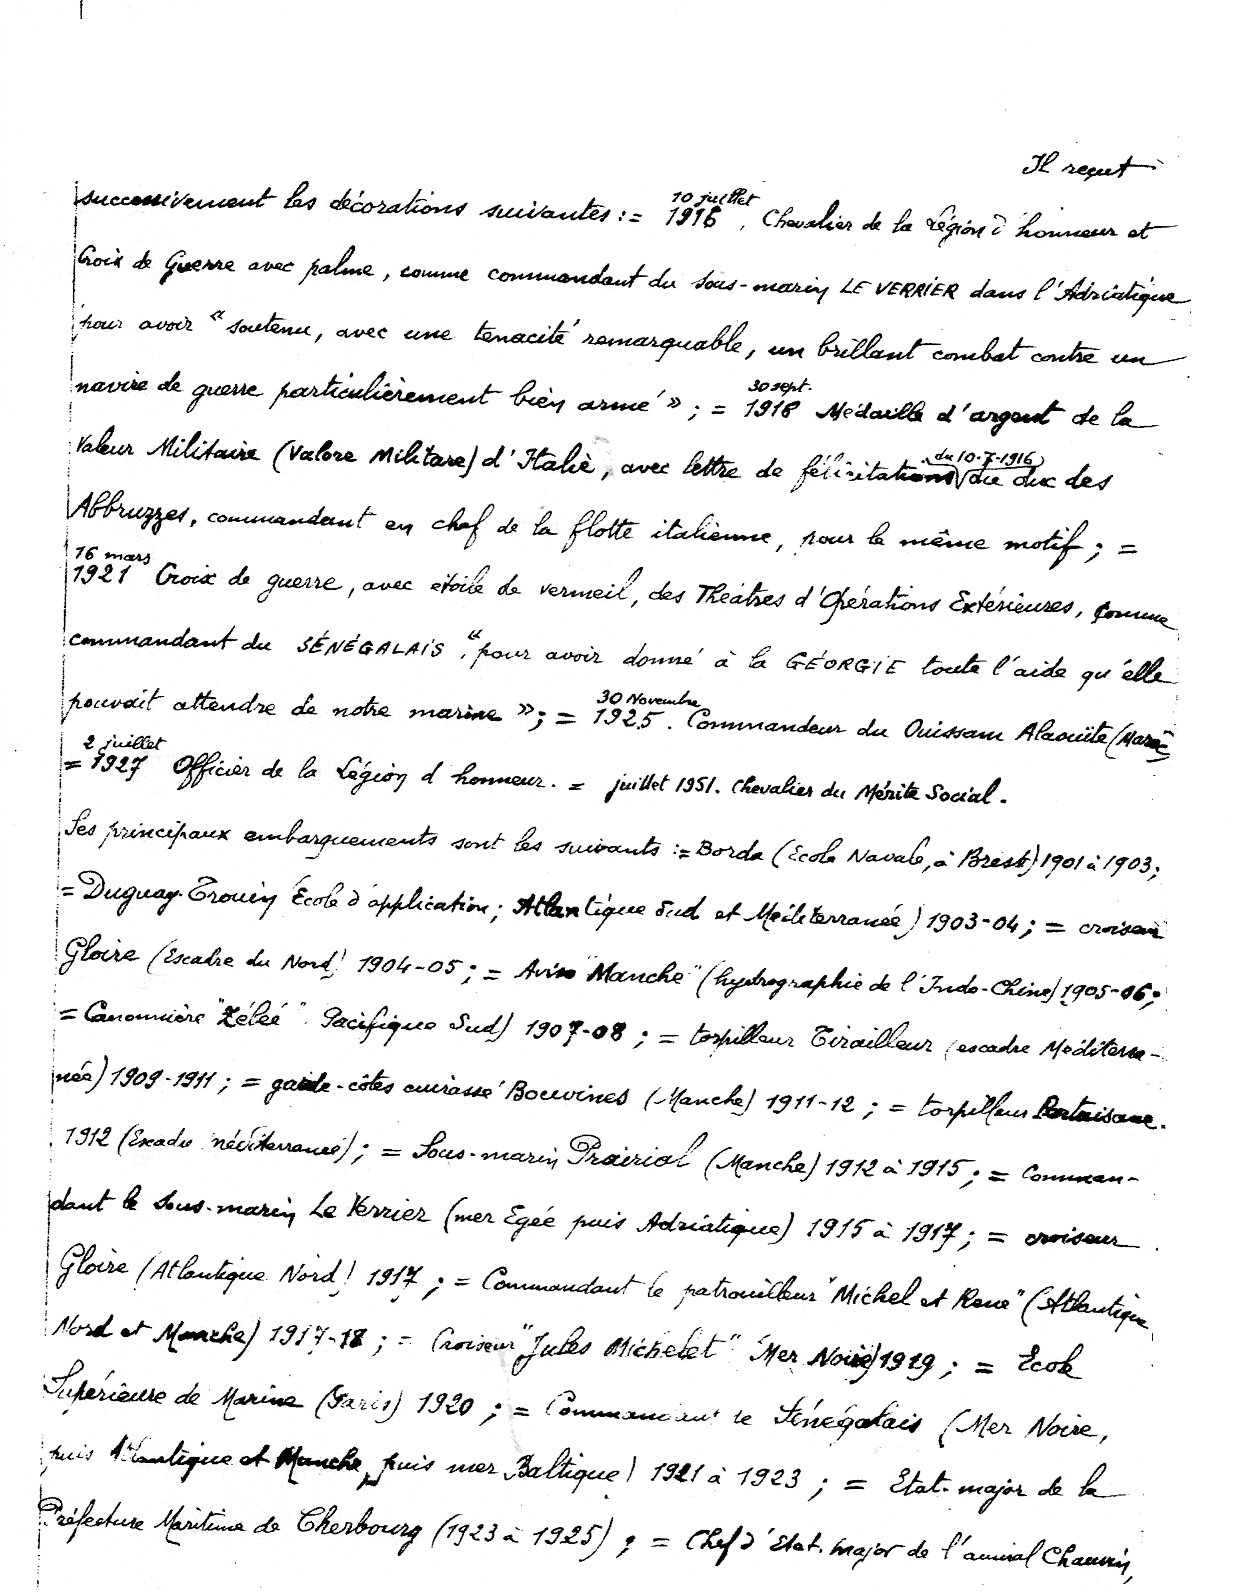 Il reçut
successivement les décorations suivantes := 10 juillet 1916, Chevalier de la Légion d'honneur et
Croix de Guerre avec palme, comme commandant du sous-marin LE VERRIER dans l'Adriatique
pour avoir "soutenu, avec une tenacité remarquable, un brillant combat contre un
navire de guerre particulièrement bien armé" ; = 30 sept. 1918 Médaille d'argent de la
Valeur Militaire (Valore Militare) d'Italie, avec lettre de félicitations du 10-7-1916 du duc des
Abbruzzes, commandant en chef de la flotte italienne, pour le même motif ; =
16 mars 1921 Croix de guerre, avec étoile de vermeil, des Théâtres d'Opérations Extérieures, comme
commandant du SÉNÉGALAIS "pour avoir donné à la GÉORGIE toute l'aide qu'elle
pouvait attendre de notre marine" ; = 30 Novembre 1925. Commandeur du Ouissam Alaouite (Maroc)
= 2 juillet 1927 Officier de la Légion d'honneur. = juillet 1951. Chevalier du Mérite Social.
Ses principaux embarquements sont les suivants := Borda (Ecole Navale, à Brest) 1901 à 1903;
= Duguay-Trouin École d'application; Atlantique Sud et Méditerranée) 1903-04 ; = croiseur
Gloire (Escadre du Nord) 1904-05 ; = Aviso "Manche" (hydrographie de l'Indo-Chine) 1905-06;
= Canonnière "Zélée" Pacifique Sud) 1907-08 ; = torpilleur Tirailleur (escadre Méditerra-
née) 1909-1911 ; = garde-côtes cuirassé Bouvines (Manche) 1911-12 ; = torpilleur Pertuisane.
1912 (Escadre méditerranée) ; = Sous-marin Prairial (Manche) 1912 à 1915 ; = Comman-
dant le sous-marin Le Verrier (mer Egée puis Adriatique) 1915 à 1917 ; = croiseur
Gloire (Atlantique Nord) 1917 ; = Commandant le patrouilleur "Michel et René" (Atlantique
Nord et Manche) 1917-18 ; = Croiseur "Jules Michelet" Mer Noire) 1919 ; = Ecole
Supérieure de Marine (Paris) 1920 ; = Commandant le Sénégalais (Mer Noire,
puis Atlantique et Manche, puis mer Baltique) 1921 à 1923 ; = Etat-major de la
Préfecture Maritime de Cherbourg (1923 à 1925) ; = Chef d'Etat-major de l'amiral Chauvin,